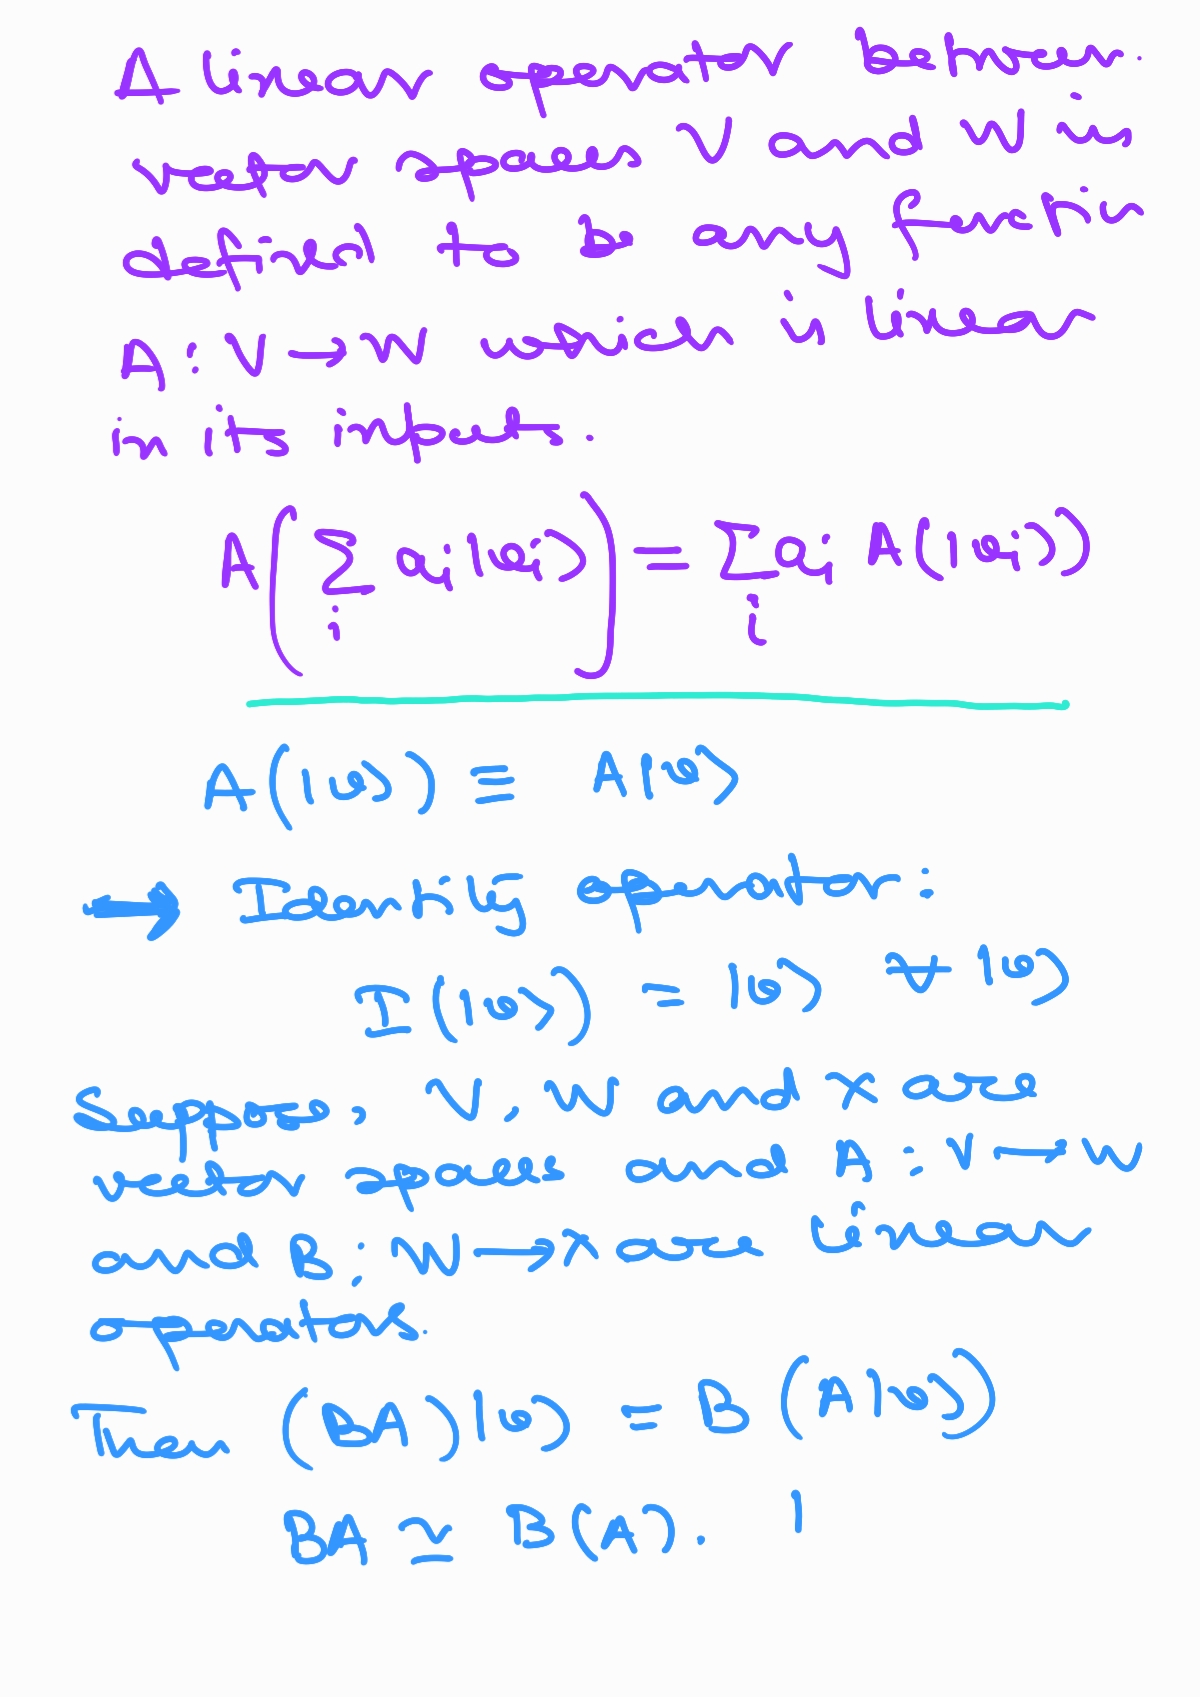 A linear operator between
vector spaces V and W is
defined to be any function
A : V → W which is linear
in its inputs.
A(∑ aᵢ|vᵢ⟩) = ∑ aᵢ A(|vᵢ⟩)
i i
A(|v⟩) ≡ A|v⟩
→ Identity operator:
I(|v⟩) = |v⟩ ∀ |v⟩
Suppose, V, W and X are
vector spaces and A : V → W
and B : W → X are linear
operators.
Then (BA)|v⟩ = B(A|v⟩)
BA ≃ B(A). |